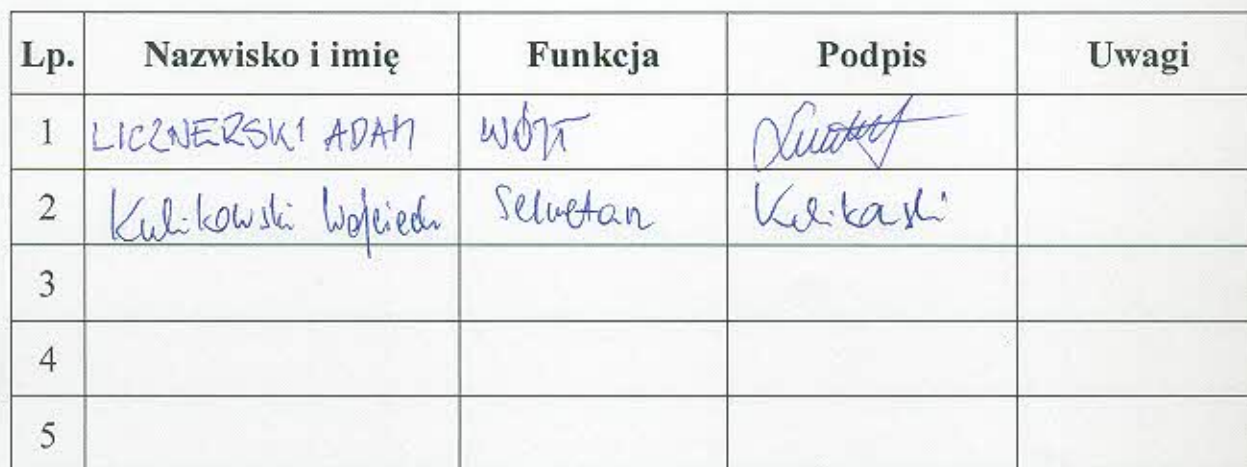 Lp. Nazwisko i imię Funkcja Podpis Uwagi
1 LICZNERSKI ADAM WÓJT
2 Kulikowski Wojciech Sekretarz Kulikowski
3
4
5